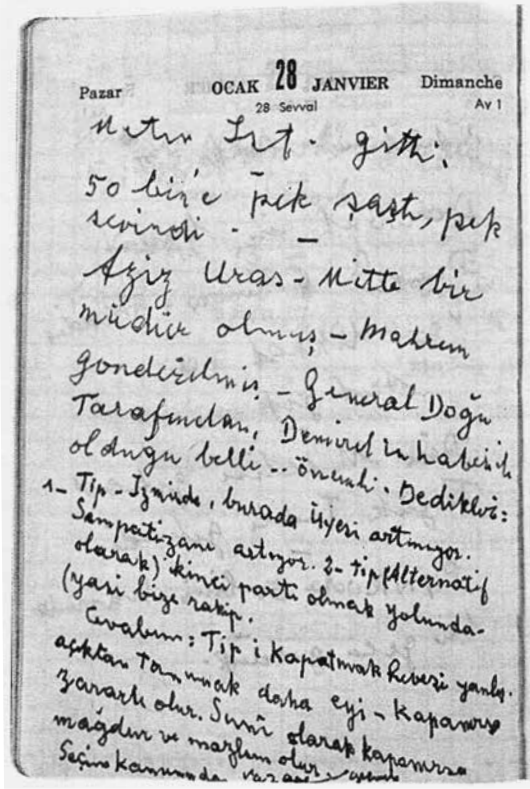 Pazar OCAK 28 JANVIER Dimanche
28 Şevval Ay 1
Metin gitti.
50 biz'e pek şaştı, pek
sevindi - —
Aziz Uras - Mitte bir
müdür olmuş - Mahrem
gönderilmiş - General Doğu
Tarafından, Demirel'in haberi
olduğu belli .. önemli. Dedikleri:
1- Tip - İzmirde, burada üyesi artmıyor.
Sempatizanı artıyor. 2- Tip (Alternatif
olarak) ikinci parti olmak yolunda-
(yani bize rakip.
Cevabım: Tip i Kapatmak hevesi yanlış.
açıktan Tanımak daha eyi - Kapanırsa
zararlı olur. Sunî olarak kapanırsa
mağdur ve mazlum olur.
Seçim Kanununda